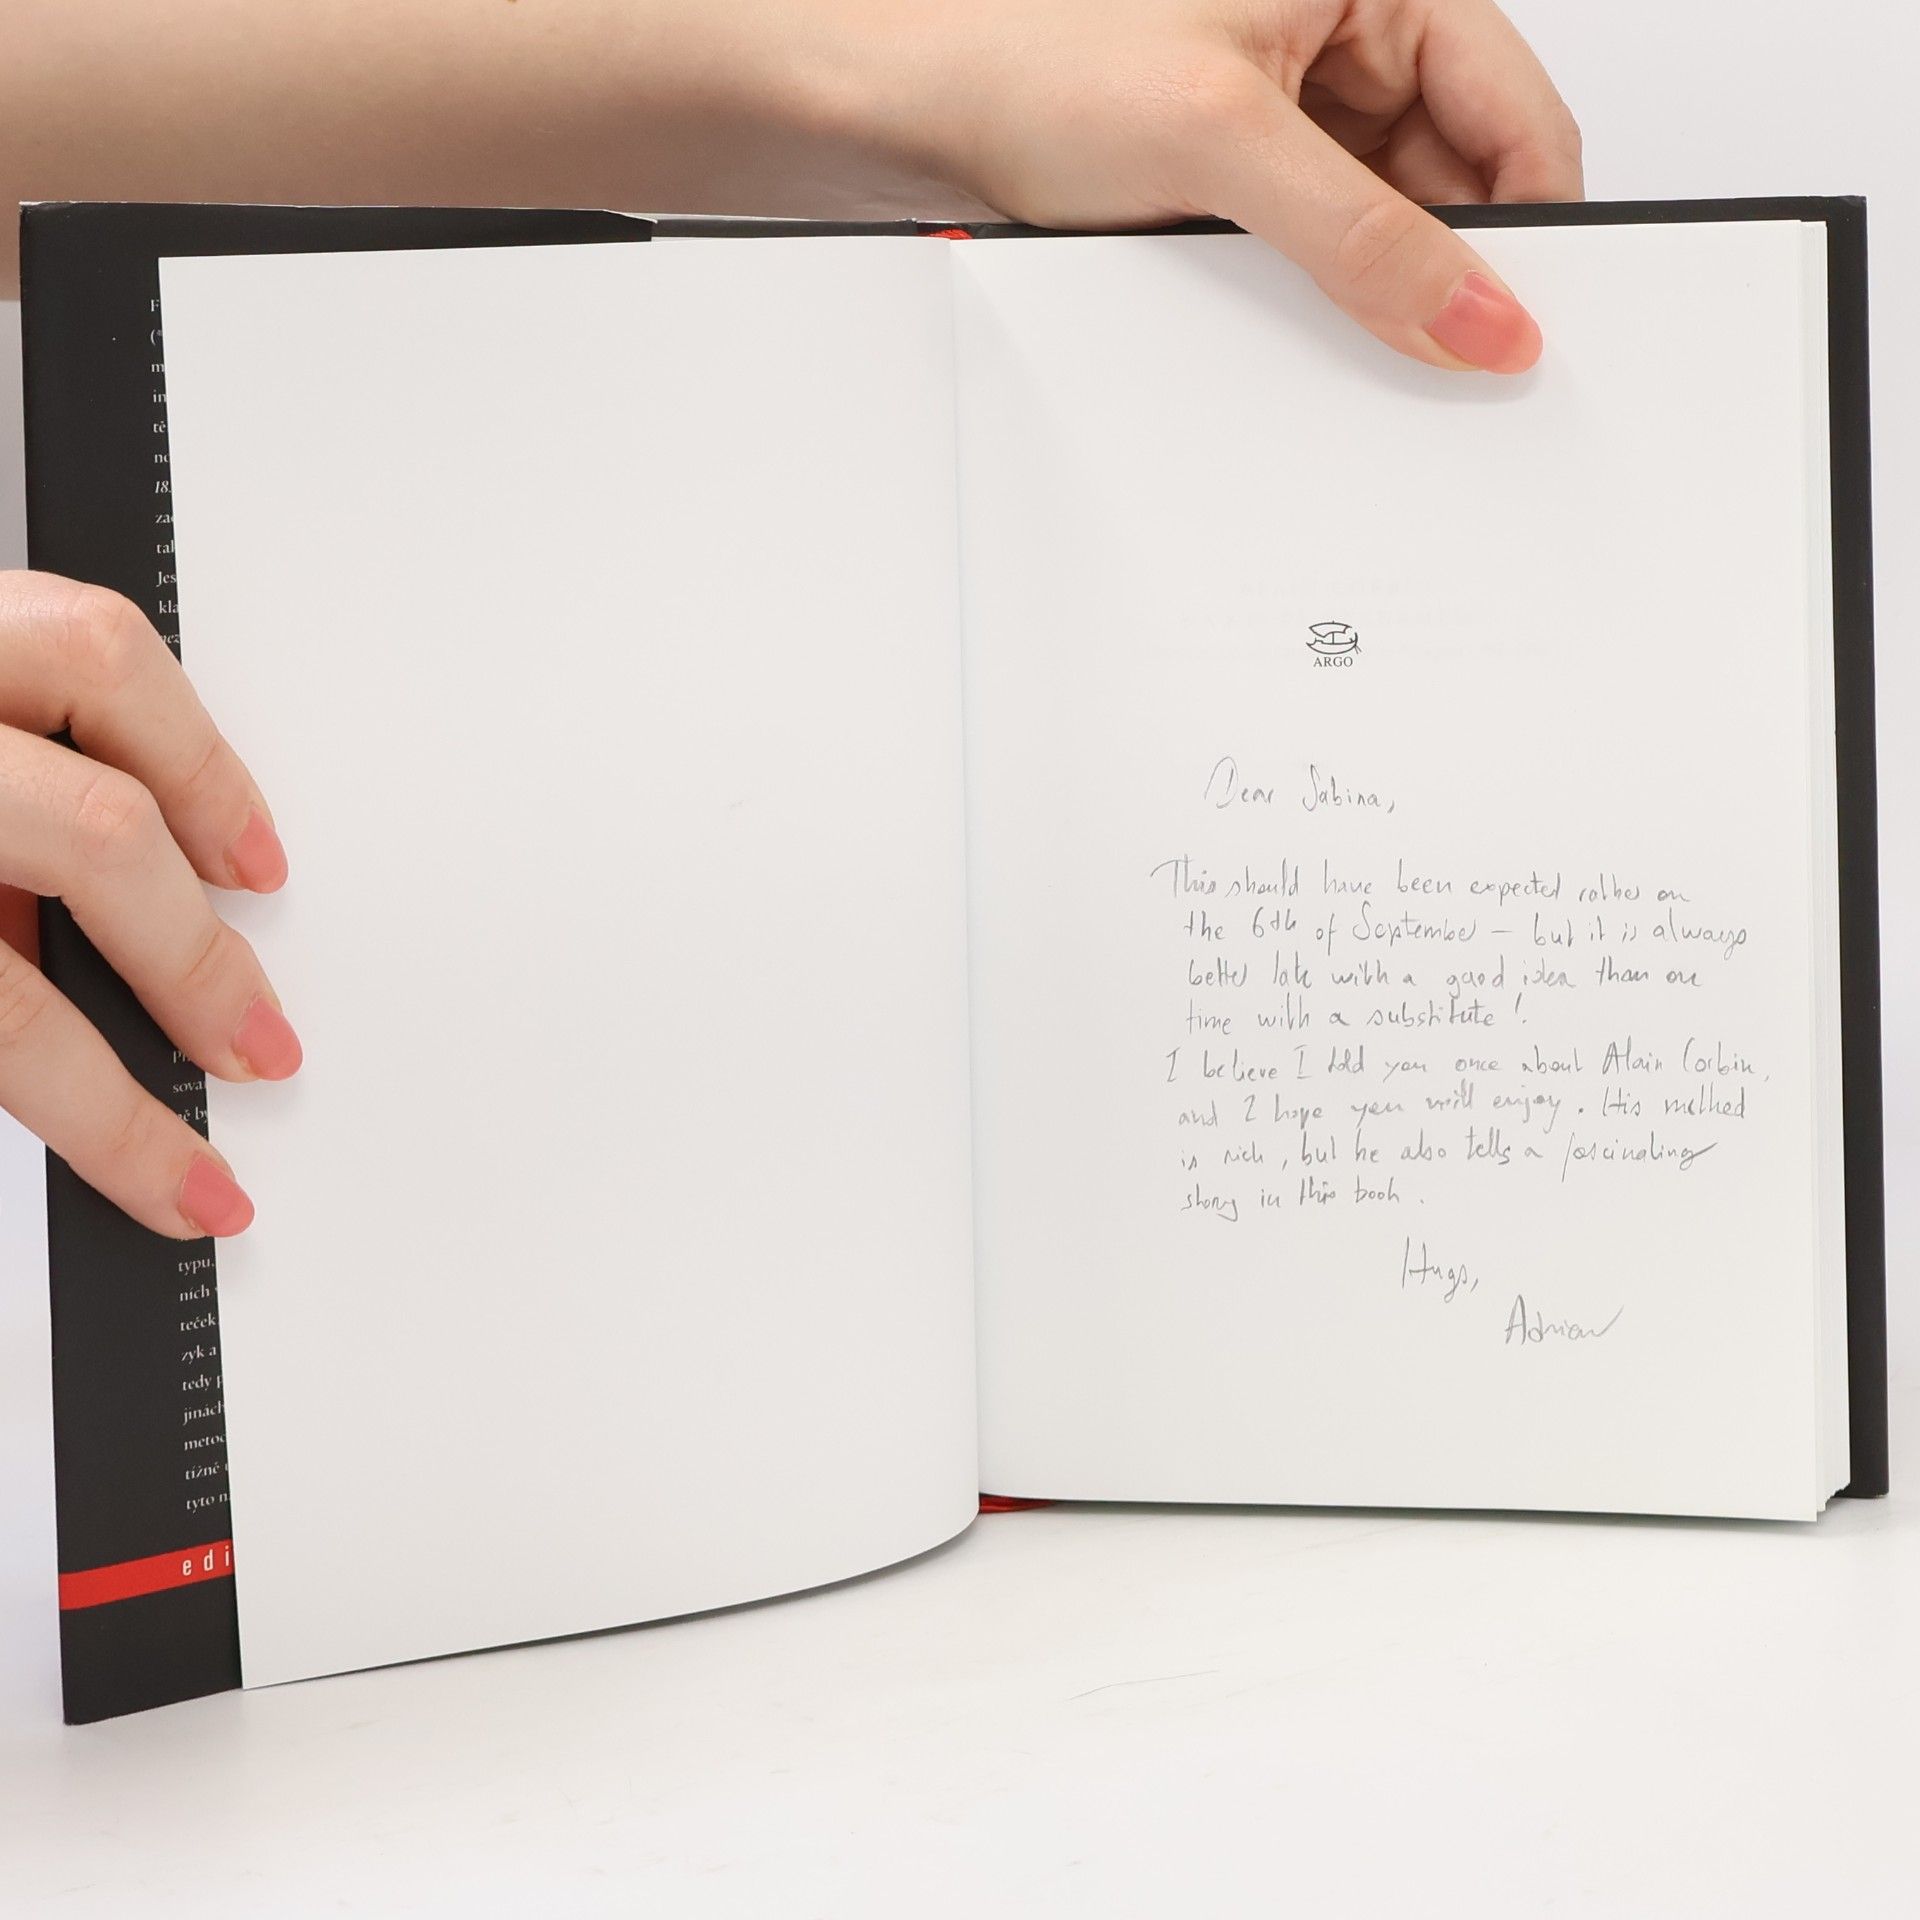 F
(*
m
in
tě
no
18.
zac
tak
Jes
kla
nez
sova
ně by
typu.
ních
teček
zyk a
tedy p
jinách
metod
tížně
tyto n
edi
ARGO
Dear Sabina,
This should have been expected rather on
the 6th of September – but it is always
better late with a good idea than on
time with a substitute!
I believe I told you once about Alain Corbin,
and I hope you will enjoy. His method
is rich, but he also tells a fascinating
story in this book.
Hugs,
Adrian